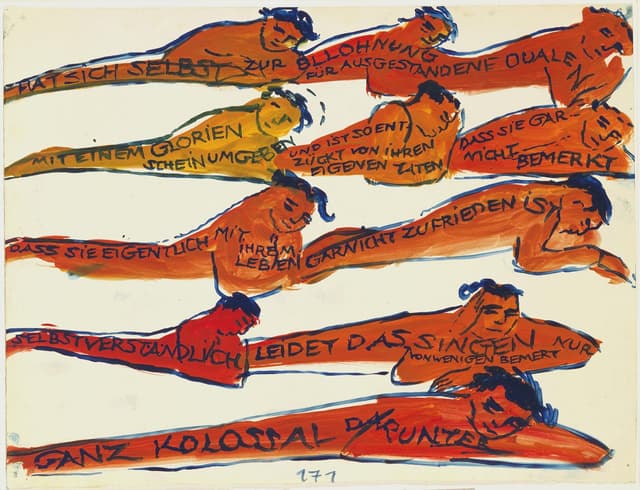 HAT SICH SELBST ZUR BLLOHNUNG
FÜR AUSGESTANDENE QUALEN
MIT EINEM GLORIEN
SCHEIN UMGEBEN
UND IST SO ENT
ZÜCKT VON IHREN
EIGENEN TATEN
DASS SIE GAR
NICHT BEMERKT
DASS SIE EIGENTLICH MIT
IHREM
LEBEN GARNICHT ZUFRIEDEN IST
SELBSTVERSTÄNDLICH LEIDET DAS SINGEN NUR
VON WENIGEN BEMERT
GANZ KOLOSSAL DARUNTER
171